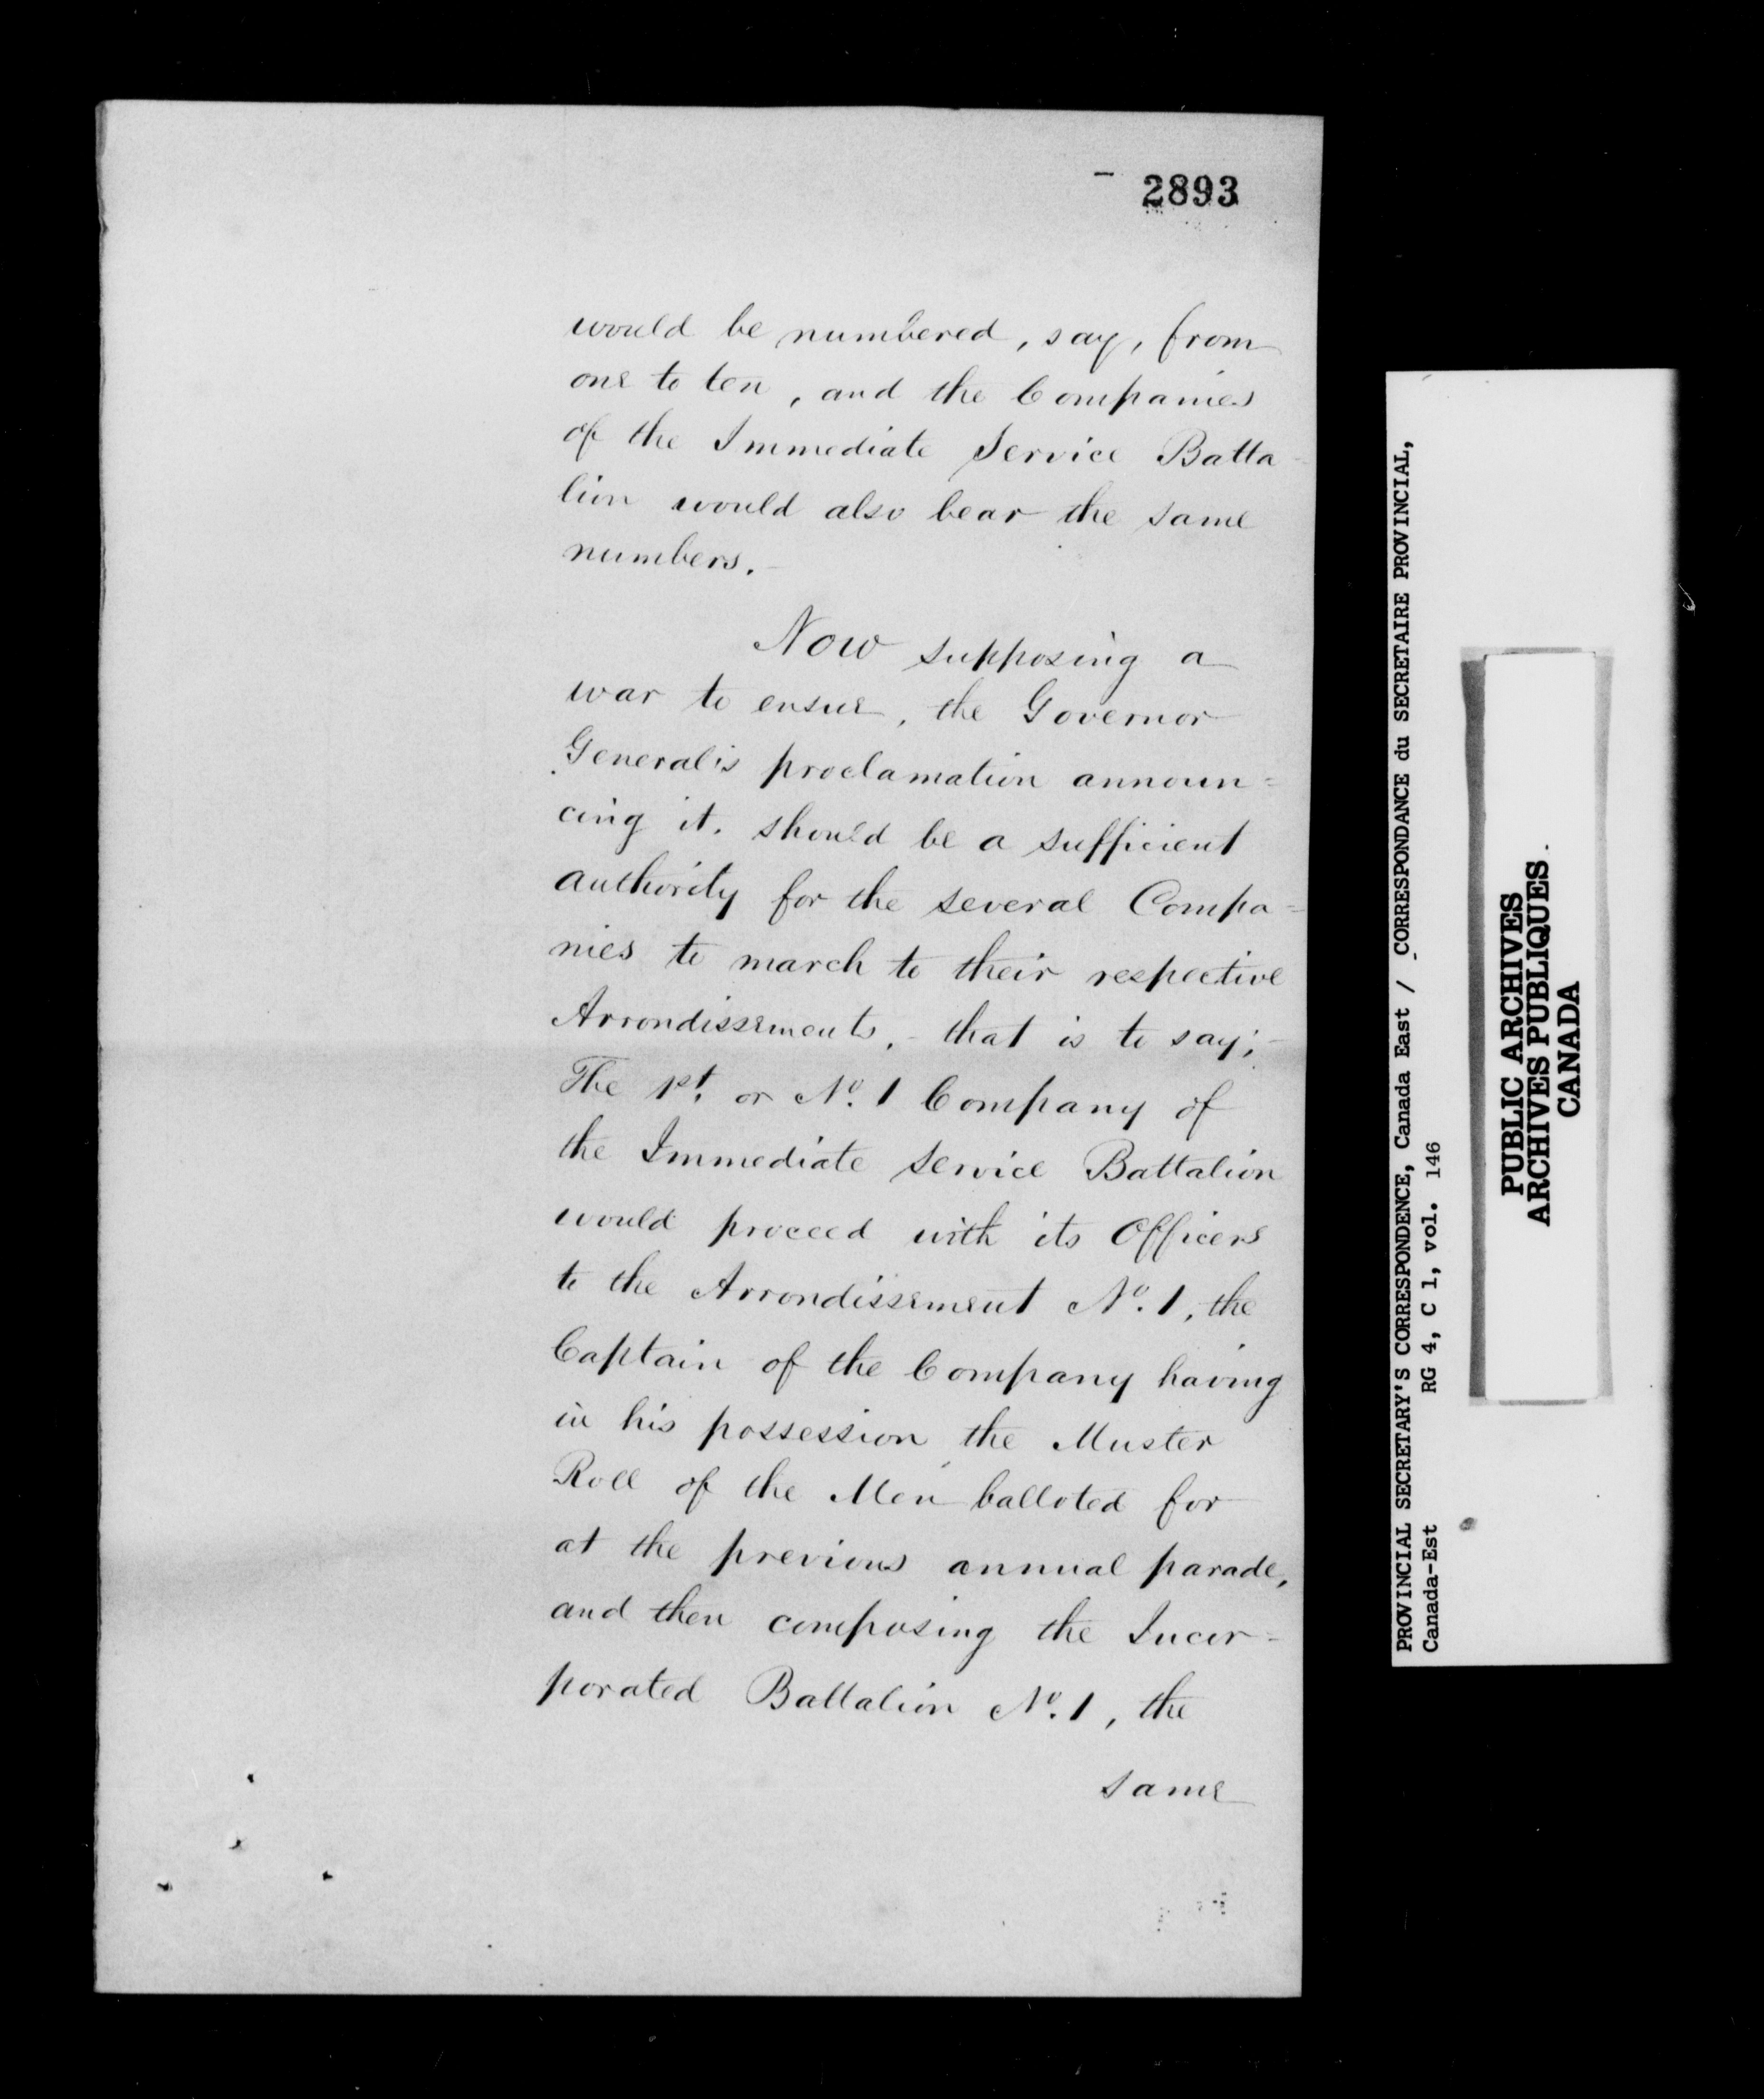 2893
would be numbered, say, from
one to ten, and the Companies
of the Immediate Service Batta-
lion would also bear the same
numbers.
Now supposing a
war to ensue, the Governor
General's proclamation announ=
cing it, should be a sufficient
authority for the several Compa=
nies to march to their respective
Arrondissements, - that is to say;
The 1st. or No. 1 Company of
the Immediate Service Battalion
would proceed with its Officers
to the Arrondissement No. 1, the
Captain of the Company having
in his possession the Muster
Roll of the Men balloted for
at the previous annual parade,
and then composing the Incor=
porated Battalion No. 1, the
same
PROVINCIAL SECRETARY'S CORRESPONDENCE, Canada East / CORRESPONDANCE du SECRETAIRE PROVINCIAL,
Canada-Est RG 4, C 1, vol. 146
PUBLIC ARCHIVES
ARCHIVES PUBLIQUES
CANADA